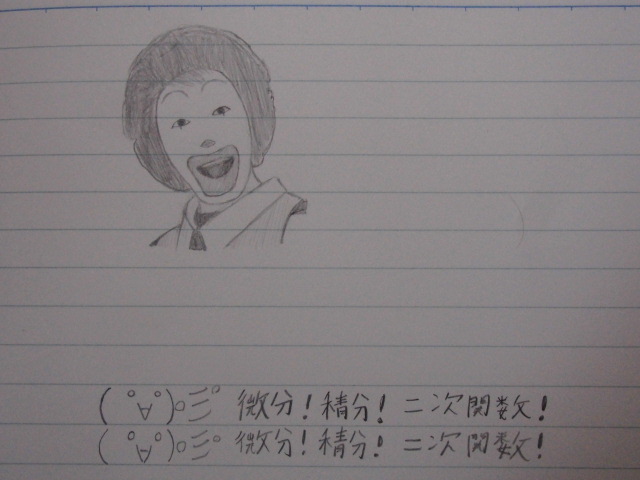 ( ゜∀゜)o彡゜微分!積分!二次関数!
( ゜∀゜)o彡゜微分!積分!二次関数!